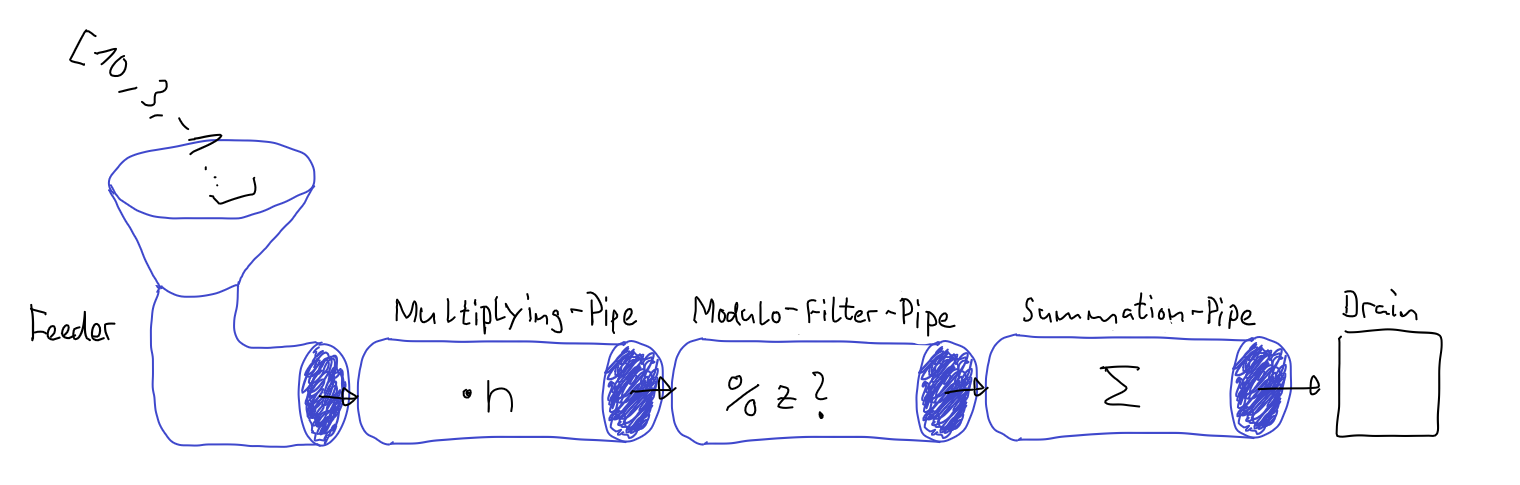 [10, 3, ... ]
Feeder
Multiplying-Pipe
Modulo-Filter-Pipe
Summation-Pipe
Drain
·n
% z ?
Σ